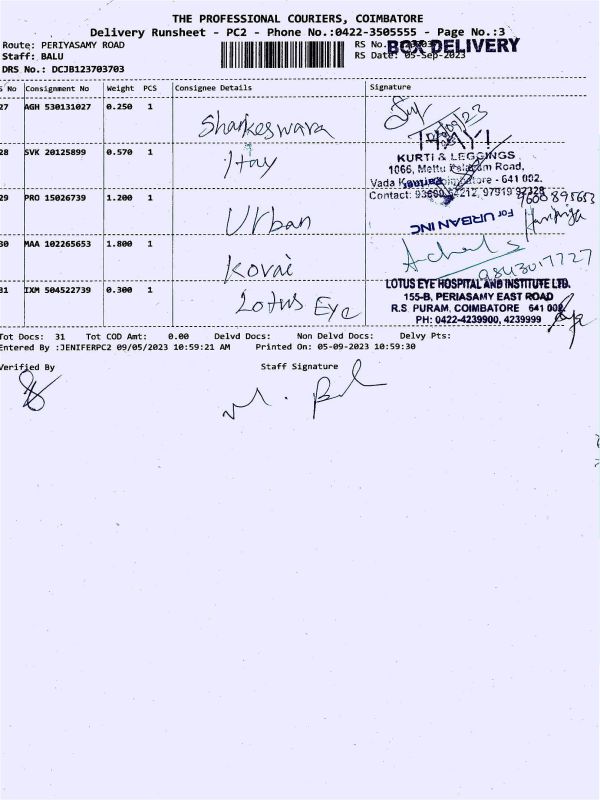 THE PROFESSIONAL COURIERS, COIMBATORE
Delivery Runsheet - PC2 - Phone No.:0422-3505555 - Page No.:3
Route: PERIYASAMY ROAD
Staff: BALU
DRS No.: DCJB123703703
RS No.
BOX DELIVERY
RS Date: 05-Sep-2023
S No Consignment No Weight PCS Consignee Details Signature
27 AGH 530131027 0.250 1 Shankeswara
28 SVK 20125899 0.570 1 Itay
KURTI & LEGGINGS
1066, Mettu Road,
Vada - 641 002.
Contact: 97919 92328
29 PRO 15026739 1.200 1 Urban
9600895653
For URBAN INC
Partner
30 MAA 102265653 1.800 1 Kovai
9843017727
31 IXM 504522739 0.300 1 Lotus Eye
LOTUS EYE HOSPITAL AND INSTITUTE LTD.
155-B, PERIASAMY EAST ROAD
R.S. PURAM, COIMBATORE 641 002
PH: 0422-4239900, 4239999
Tot Docs: 31 Tot COD Amt: 0.00 Delvd Docs: Non Delvd Docs: Delvy Pts:
Entered By :JENIFERPC2 09/05/2023 10:59:21 AM Printed On: 05-09-2023 10:59:30
Verified By Staff Signature